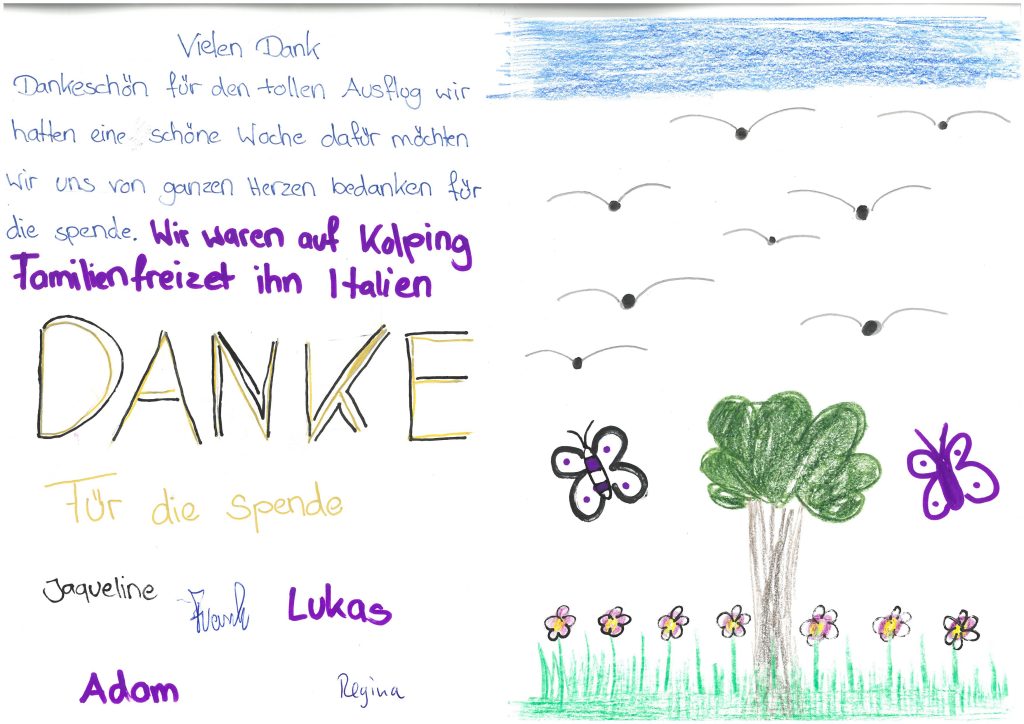 Vielen Dank
Dankeschön für den tollen Ausflug wir
hatten eine schöne Woche dafür möchten
wir uns von ganzen Herzen bedanken für
die spende. Wir waren auf Kolping
Familienfreizet ihn Italien
DANKE
Für die spende
Jaqueline
Frank
Lukas
Adam
Regina